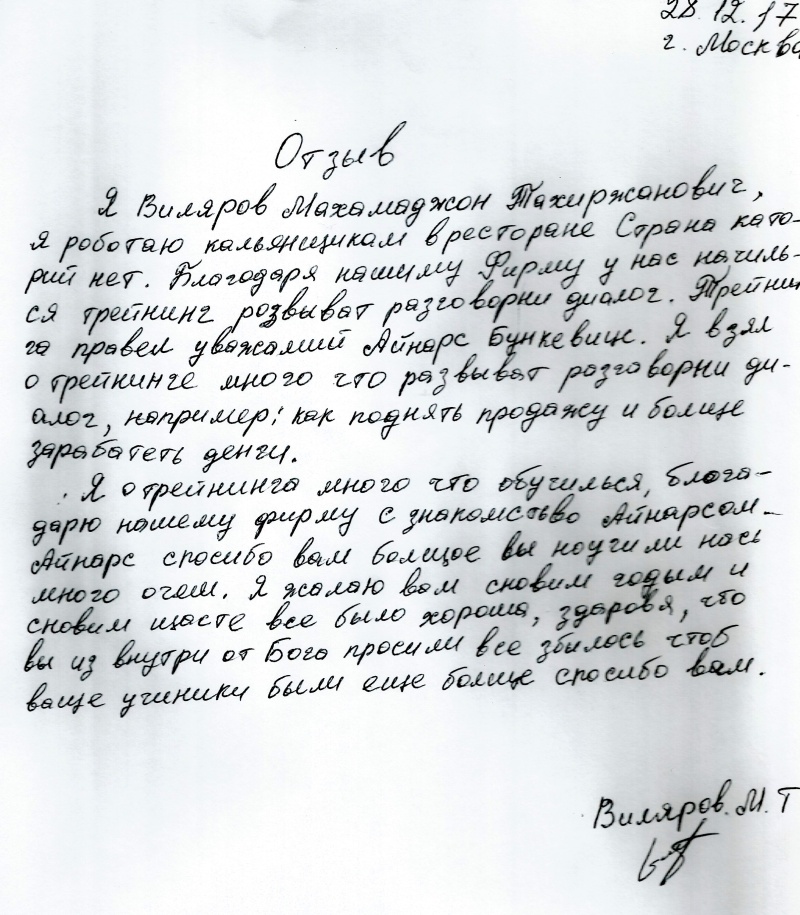 28.12.17
г. Москва
Отзыв
Я Виляров Махамаджон Тахиржанович,
я роботаю кальянщикам в ресторане Страна като-
рий нет. Благодаря нашиму Фирму у нас начиль-
ся трейнинг розвыват разговорни диалог. Трейнин
га правел уважамий Айнарс Бункевищ. Я взял
о трейнинге много что развыват разговорни ди-
алог, например: как поднять продажу и болще
зарабатеть денги.
Я о трейнинга много что обучилься, блога-
дарю нашему фирму с знакомство Айнарсом
Айнарс спосибо вам болщое вы ноучили нась
много очем. Я жалаю вам сновим годым и
сновим щасте все было хороша, здаровя, что
вы из внутри от Бога просили все збылось чтоб
ваще учиники были еще болще спосибо вам.
Виляров. М. Т